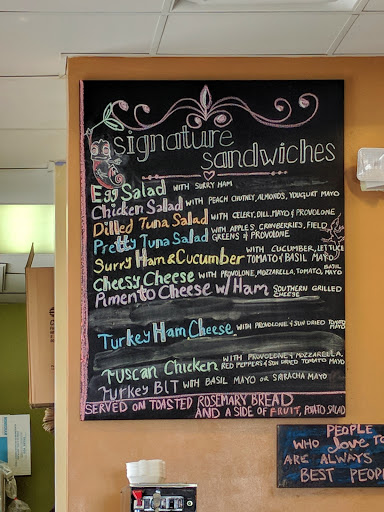 signature
sandwiches
Egg Salad WITH SURRY HAM
Chicken Salad WITH PEACH CHUTNEY, ALMONDS, YOUGURT MAYO
Dilled Tuna Salad WITH CELERY, DILL, MAYO & PROVOLONE
Pretty Tuna Salad WITH APPLES, CRANBERRIES, FIELD GREENS & PROVOLONE
Surry Ham & Cucumber WITH CUCUMBER, LETTUCE TOMATO & BASIL MAYO
Cheesy Cheese WITH PROVOLONE, MOZZARELLA, TOMATO, BASIL MAYO
Pimento Cheese w/ Ham SOUTHERN GRILLED CHEESE
Turkey Ham Cheese WITH PROVOLONE & SUN DRIED TOMATO MAYO
Tuscan Chicken WITH PROVOLONE & MOZZARELLA, RED PEPPERS & SUN DRIED TOMATO MAYO
Turkey BLT WITH BASIL MAYO OR SRIRACHA MAYO
SERVED ON TOASTED ROSEMARY BREAD
AND A SIDE OF FRUIT, POTATO SALAD
PEOPLE
WHO love TO
ARE ALWAYS
BEST PEOP